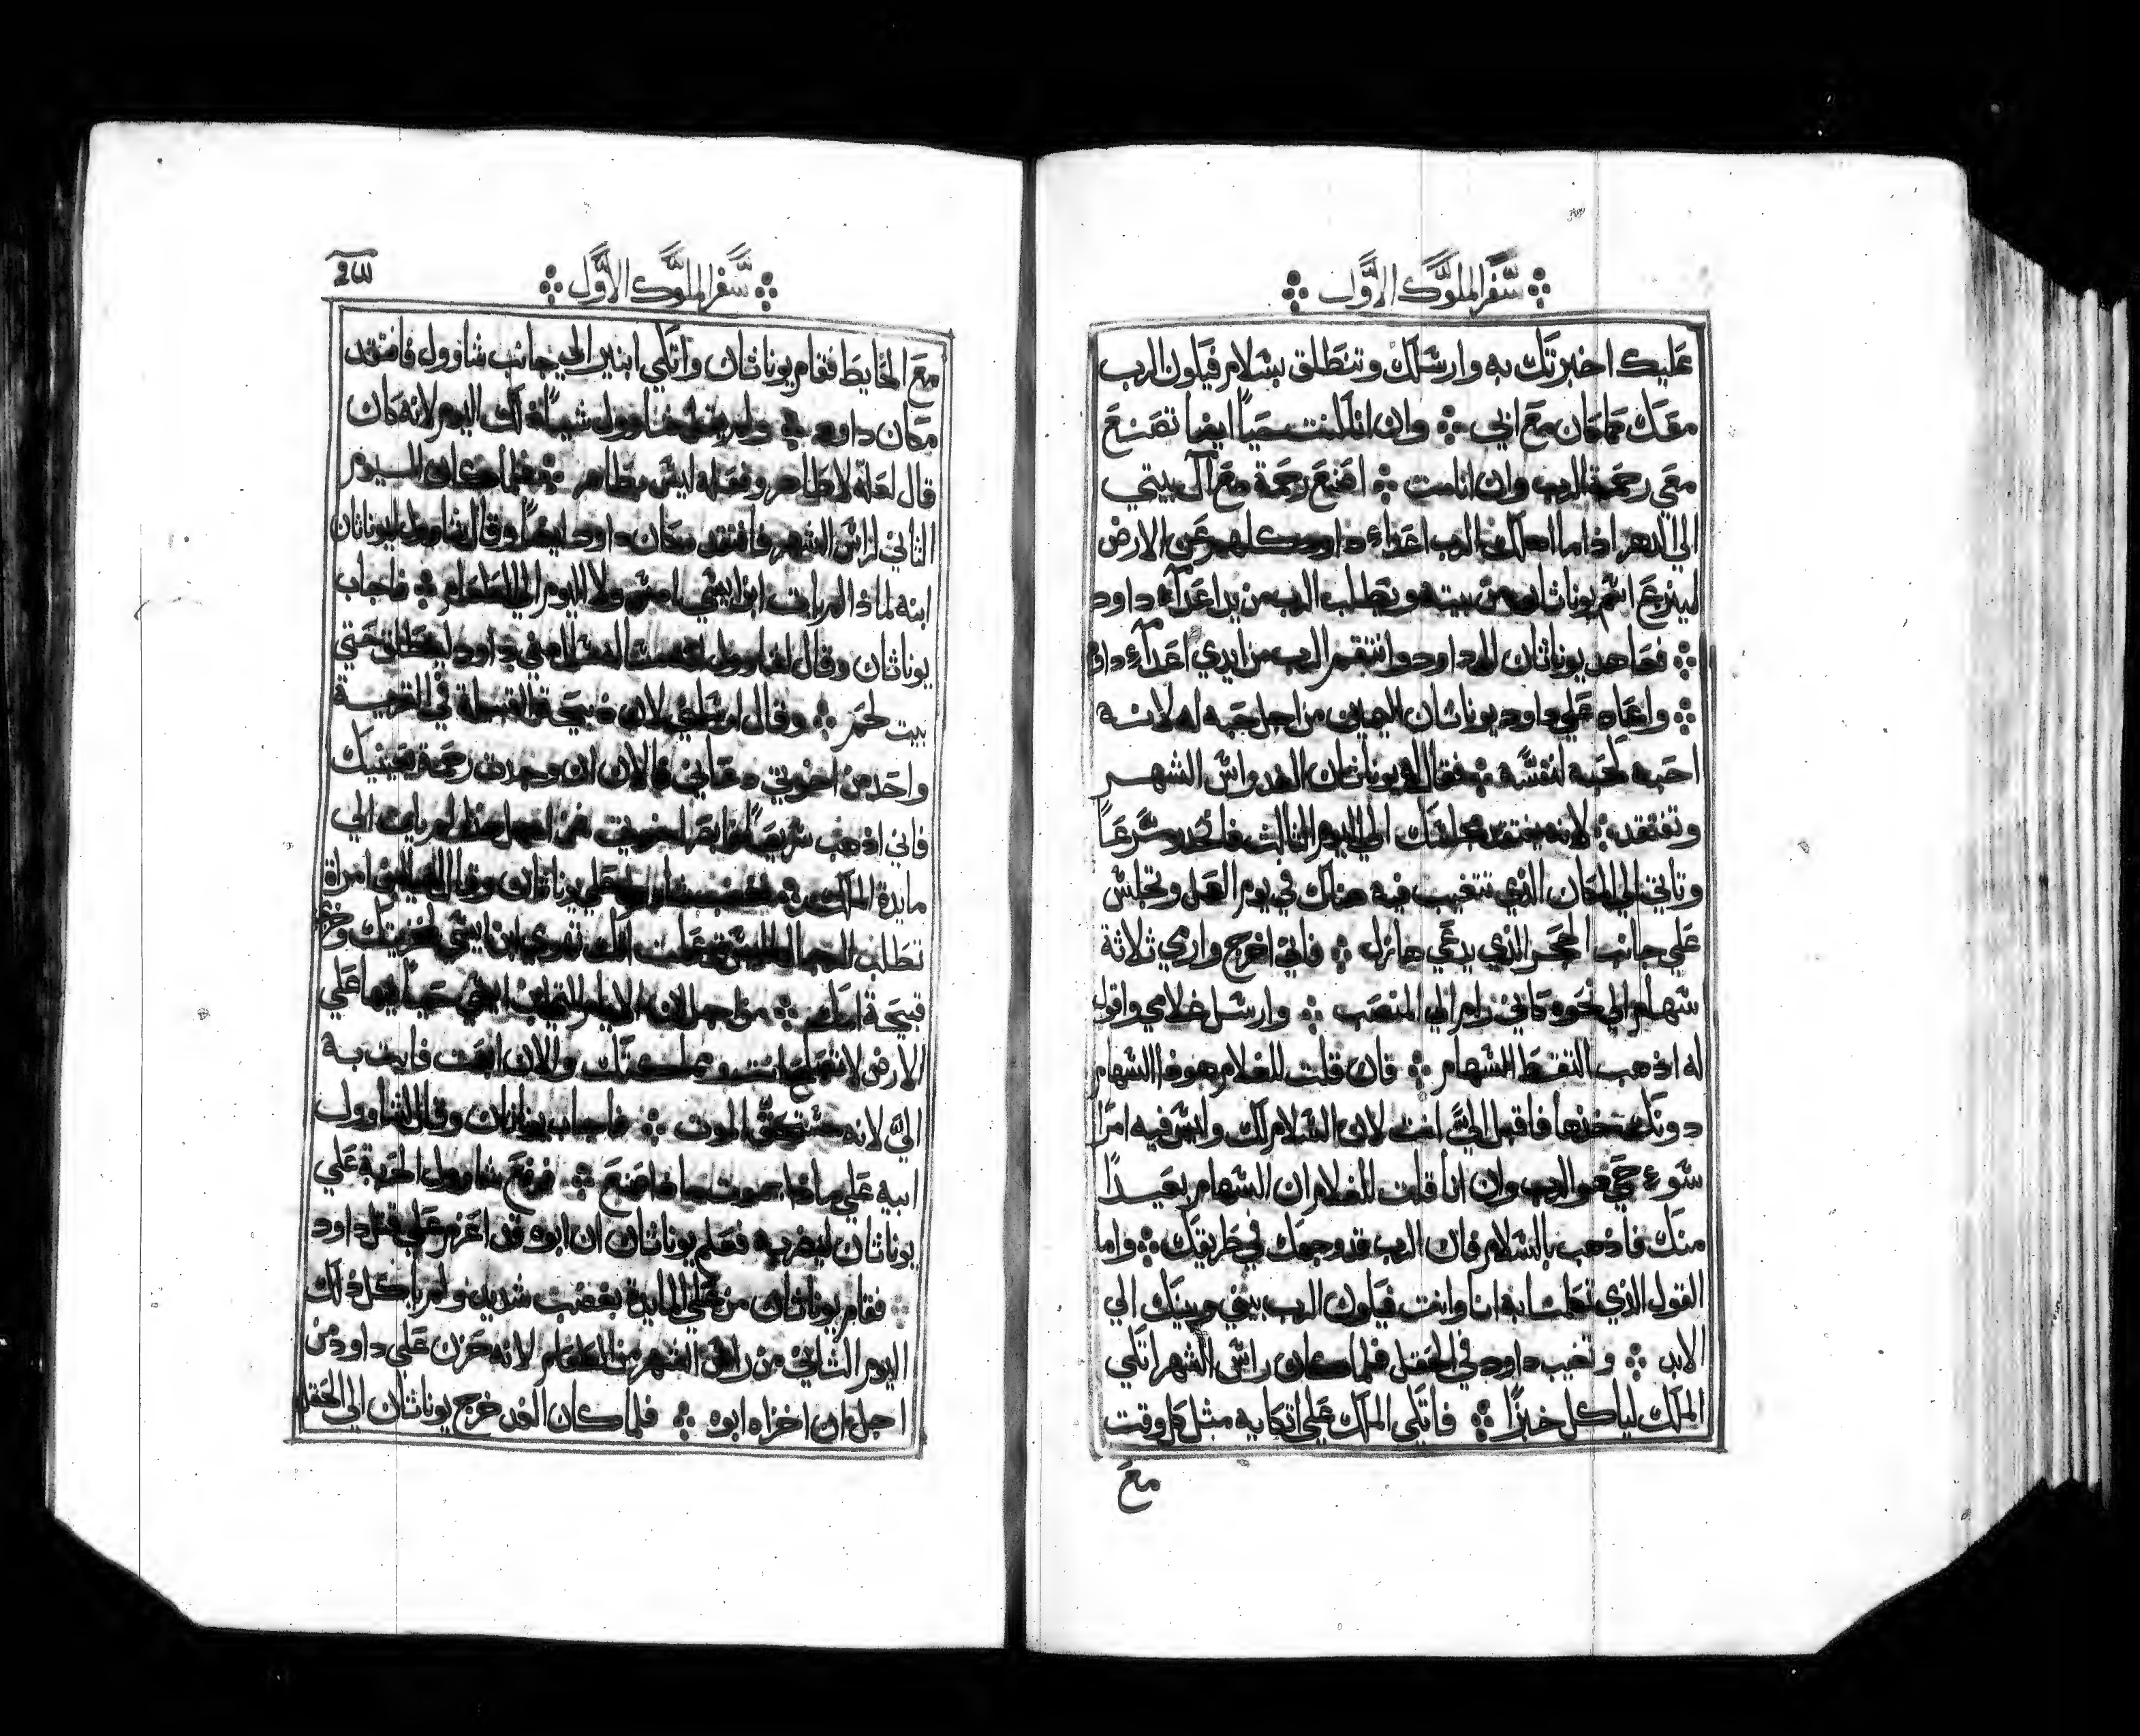 سفر الملوك الاول
عليك اخبرتك به وارسلك وتنطلق بسلام فيكون الرب
معك كما كان مع ابي وان انا كنت حياً ايضا تصنع
معي رحمة الرب وان انا مت اصنع رحمة مع آل بيتي
الي الدهر اذا ما اهلك الرب اعداء داود كلهم عن الارض
لينزع اسم يوناثان من بيته ويطلب الرب من يد اعداء داود
فعاهد يوناثان ال داود وانتقم الرب من ايدي اعداء داود
واعاد علي داود يوناثان اليمين من اجل حبه له لانه
احبه كحبه لنفسه فقال له يوناثان الغد راس الشهر
وتفتقد لانه يفتقد مجلسك الي اليوم الثالث فانحدر سرعاً
وتاتي الي المكان الذي تتغيب فيه هناك في يوم العمل وتجلس
علي جانب الحجر الذي يدعي هازل فاني اخرج وارمي ثلاثة
سهام الي نحوه كاني رام الي المنصب وارسل غلامي واقول
له اذهب التقط السهام فان قلت للغلام هوذا السهام
دونك خذها فاقبل اليّ انت لان السلام لك وليس فيه امرا
سوء حي هو الرب وان انا قلت للغلام ان السهام بعيداً
منك فاذهب بالسلام فان الرب قد وجهك في طريقك واما
القول الذي تكلمنا به انا وانت فيكون الرب بيني وبينك الي
الابد وتغيب داود في الحقل فلما كان راس الشهر اتكي
الملك لياكل خبزًا فاتكي الملك علي اتكايه مثل كل وقت
مع
سفر الملوك الاول
مع الحايط فقام يوناثان واتكي ابنير الي جانب شاوول فافتقد
مكان داود ولم يقل شاوول شياً ذلك اليوم لانه كان
قال لعله لا طاهر ولعله ليس بطاهر فلما كان اليوم
الثاني لراس الشهر فافتقد مكان داود ايضاً وقال شاوول ليوناثان
ابنه لماذا لم يات ابن ايسي امس ولا اليوم الي الطعام فاجاب
يوناثان وقال لشاوول داود لينطلق حتي
بيت لحم وقال ارسلني لان ذبيحة القبيلة في القرية
واحد من اخوتي دعاني والان ان وجدت رحمة بعينيك
فاني اذهب اخوتي من اجل هذا لم يات الي
مايدة الملك فغضب شاوول علي يوناثان وقال له امراة
ابن ايسي لخزيتك وخزي
قبيحة امك من اجل ان الايام ابن ايسي حياً فيها علي
الارض لا تصلح انت ومملكتك والان ابعث فايت به
اليّ لانه مستحق الموت فاجاب يوناثان وقال لشاوول
ابيه علي ماذا يموت ماذا صنع فرفع شاوول الحربة علي
يوناثان ليضربه فعلم يوناثان ان ابوه قد اعزم علي قتل داود
فقام يوناثان من علي المايدة بغضب شديد ولم ياكل ذلك
اليوم الثاني من راس الشهر من الطعام لانه حزن علي داود من
اجل ان اخزاه ابوه فلما كان الغد خرج يوناثان الي الحقل